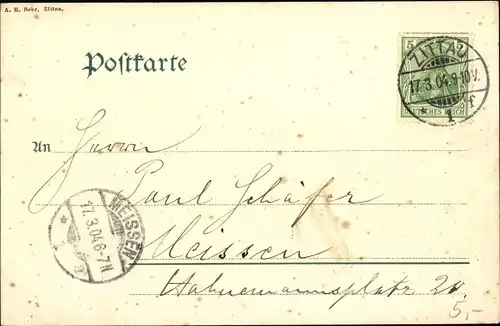 A. H. Behr, Zittau.
Postkarte
5
ZITTAU
17.3.04.9-10V.
* 1 f
DEUTSCHES REICH
An Herrn
Paul Schäfer
MEISSEN
17.3.04.6-7N
Meissen
Hahnemannsplatz 20.
5,-